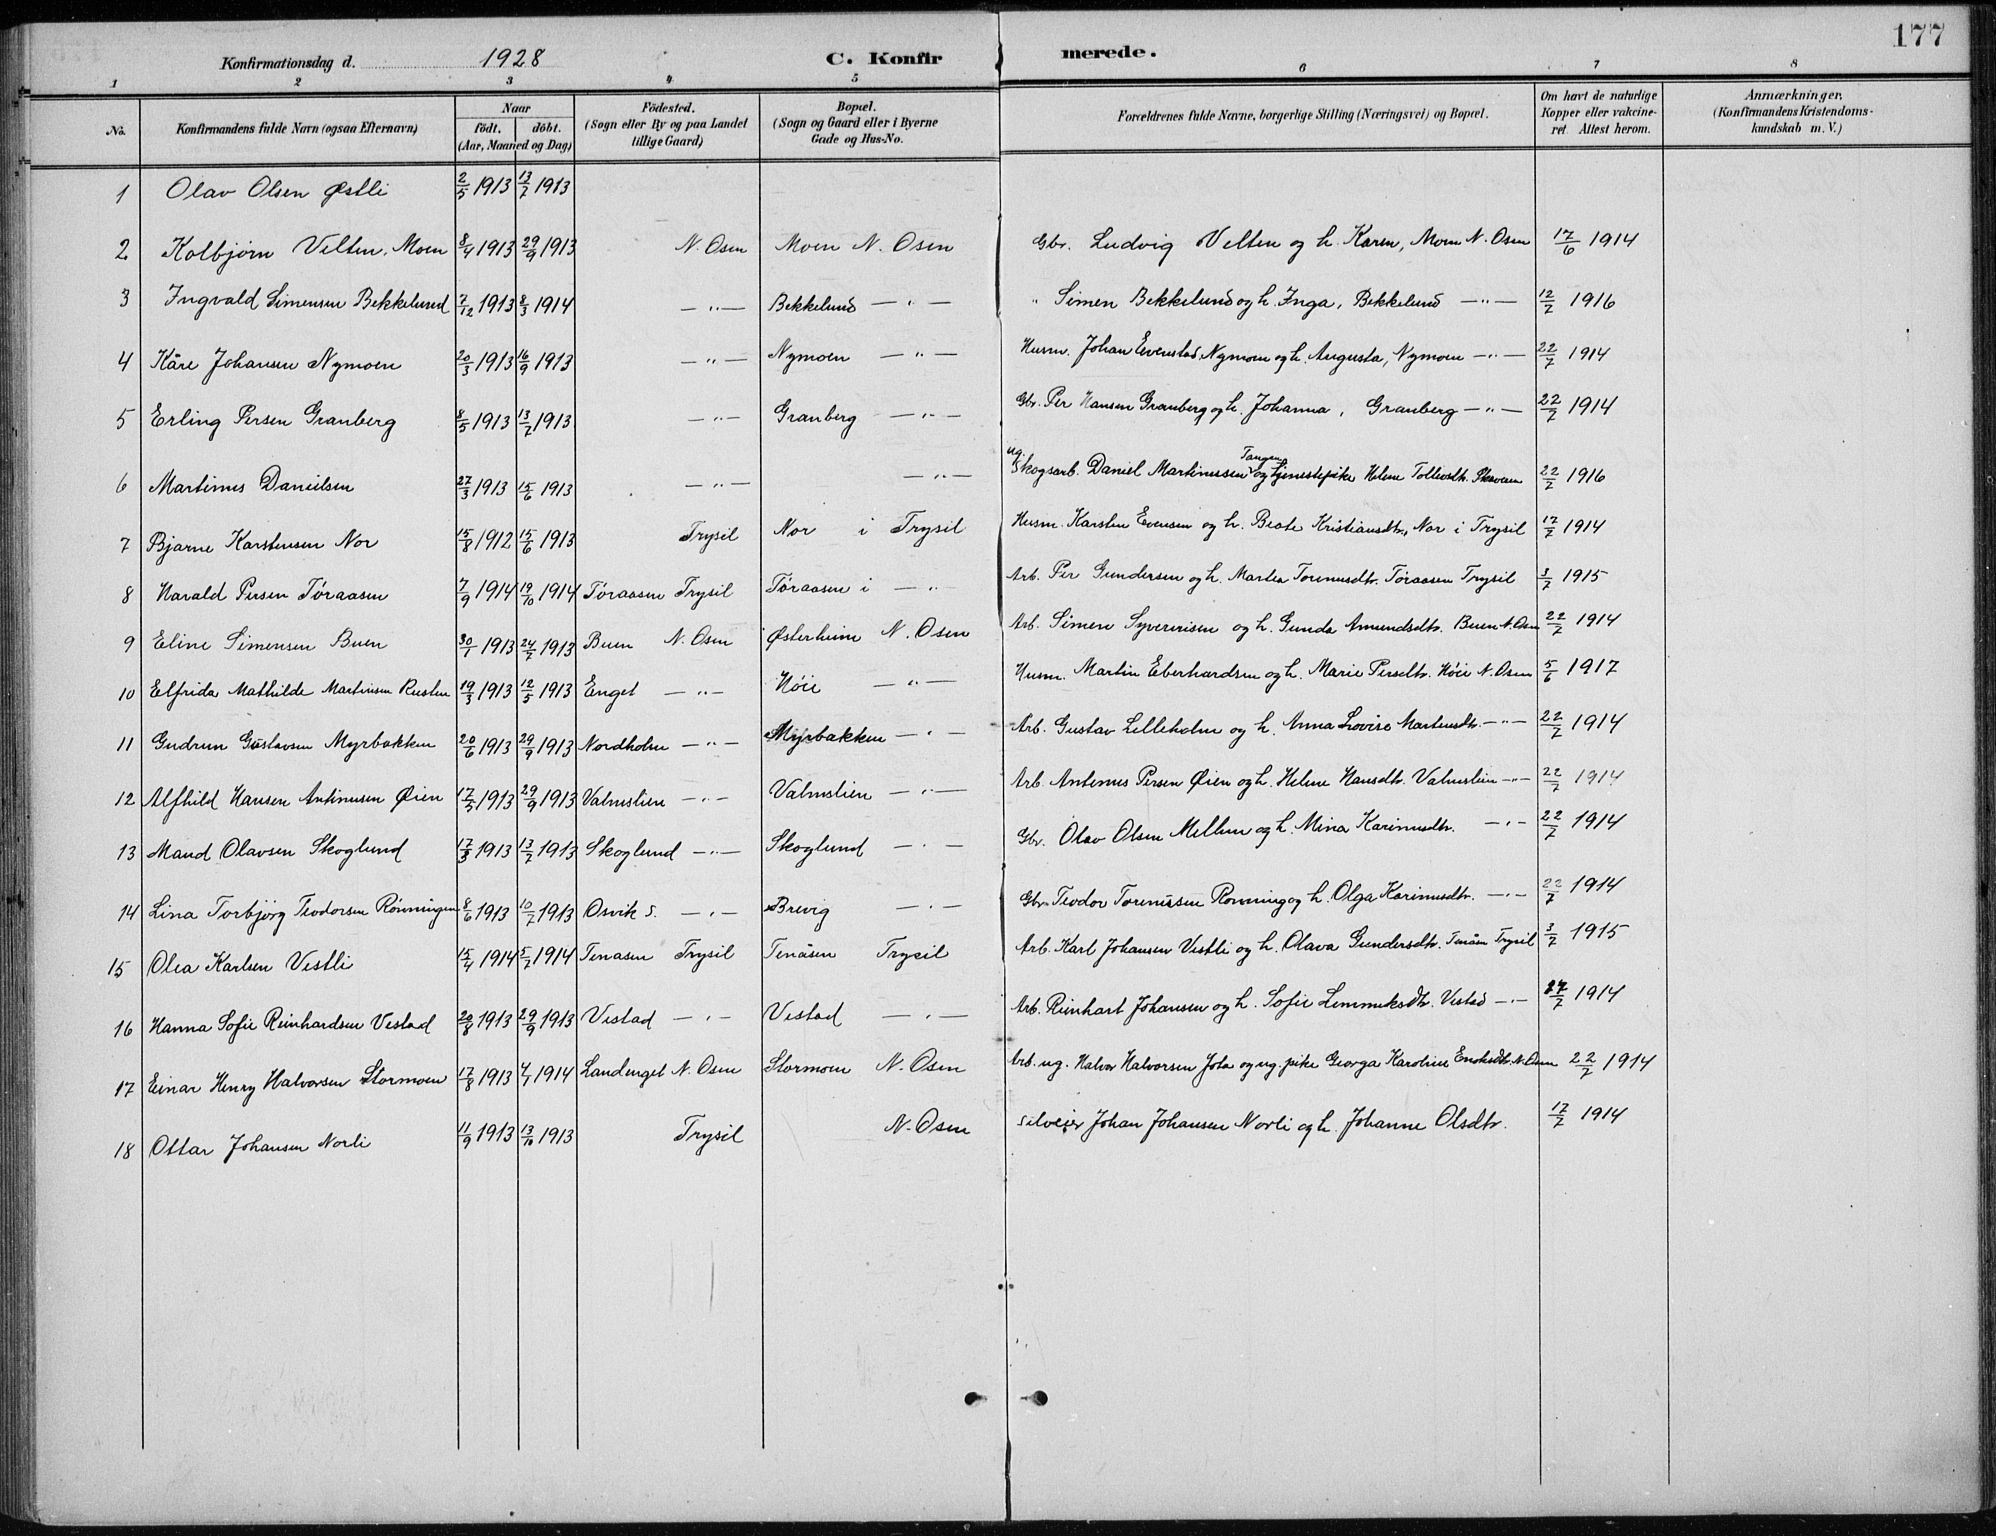 177
Konfirmationsdag d. 1928 C. Konfirmerede.
1 2 3 4 5 6 7 8
No. Konfirmandens fulde Navn (ogsaa Efternavn) Naar födt. döbt. (Aar, Maaned og Dag) Födested. (Sogn eller By og paa Landet tillige Gaard) Bopæl. (Sogn og Gaard eller i Byerne Gade og Hus-No. Forældrenes fulde Navne, borgerlige Stilling (Næringsvei) og Bopæl. Om havt de naturlige Kopper eller vakcineret. Attest herom. Anmærkninger. (Konfirmandens Kristendomskundskab m. V.)
1 Olav Olsen Østli 2/5 1913 13/7 1913
2 Kolbjørn Velten, Moen 8/4 1913 29/9 1913 N. Osen Moen N. Osen Gbr. Ludvig Velten og h. Karen, Moen N. Osen 17/6 1914
3 Ingvald Simensen Bekkelund 7/12 1913 8/3 1914 —"— Bekkelund —"— " Simen Bekkelund og h. Inga, Bekkelund —"— 12/7 1916
4 Kåre Johansen Nymoen 20/3 1913 16/9 1913 —"— Nymoen —"— Husm. Johan Evenstad, Nymoen og h. Augusta, Nymoen —"— 22/7 1914
5 Erling Persen Granberg 8/5 1913 13/7 1913 —"— Granberg —"— Gbr. Per Hansen Granberg og h. Johanna, Granberg —"— 22/7 1914
6 Martinus Danielsen 27/3 1913 15/6 1913 —"— —"— ug. Skogsarb. Daniel Martinussen Tangen og tjenestepike Helene Tollevsdtr. 22/7 1916
7 Bjarne Karstensen Nor 15/8 1912 15/6 1913 Trysil Nor i Trysil Husm. Karsten Evensen og h. Beate Kristiansdtr., Nor i Trysil 17/7 1914
8 Harald Persen Töraasen 7/9 1914 19/10 1914 Töraasen Trysil Töraasen i —" Arb. Per Gundersen og h. Martea Torenusdtr. Töraasen Trysil 3/7 1915
9 Eline Simensen Buen 30/1 1913 24/7 1913 Buen N. Osen Østerheim N. Osen Arb. Simen Syverinsen og h. Gunda Amundsdtr. Buen N. Osen 22/7 1914
10 Elfrida Mathilde Martinsen Rusten 19/3 1913 12/5 1913 Enget —"— Höie —"— Husm. Martin Eberhardsen og h. Marie Persdtr. Höie N. Osen 5/6 1917
11 Gudrun Gustavsen Myrbakken 20/6 1913 29/9 1913 Nordholm —"— Myrbakken —"— Arb. Gustav Lilleholm og h. Anna Lovise Martinsdtr. —"— 22/7 1914
12 Alfhild Hansen Antinusen Øien 17/5 1913 29/9 1913 Valmslien —"— Valmslien —"— Arb. Antenus Persen Øien og h. Helene Hansdtr. Valmslien —"— 22/7 1914
13 Maud Olavsen Skoglund 17/3 1913 13/7 1913 Skoglund —"— Skoglund —"— Gbr. Olav Olsen Mellem og h. Mina Karinusdtr. —"— 22/7 1914
14 Lina Torbjörg Teodorsen Rönningen 8/6 1913 10/7 1913 Osvik S. —"— Brevig —"— Gbr. Teodor Torenusen Rönning og h. Olga Karinusdtr. —"— 22/7 1914
15 Olea Karlsen Vestli 15/4 1914 5/7 1914 Tenasen Trysil Tenåsen Trysil Arb. Karl Johansen Vestli og h. Olava Gundersdtr. Tenåsen Trysil 3/7 1915
16 Hanna Sofie Reinhardsen Vestad 20/8 1913 29/9 1913 Vestad —"— Vestad —"— Arb. Reinhart Johansen og h. Sofie Lemmeksdtr. Vestad —"— 27/7 1914
17 Einar Henry Halvorsen Stormoen 17/8 1913 4/1 1914 Landenget N. Osen Stormoen N. Osen Arb. ug. Halvor Halvorsen Jota og ug. pike Georga Karoline N. Osen 22/7 1914
18 Ottar Johansen Norli 11/9 1913 13/10 1913 Trysil N. Osen Selveier Johan Johansen Norli og h. Johanne Olsdtr. 17/7 1914